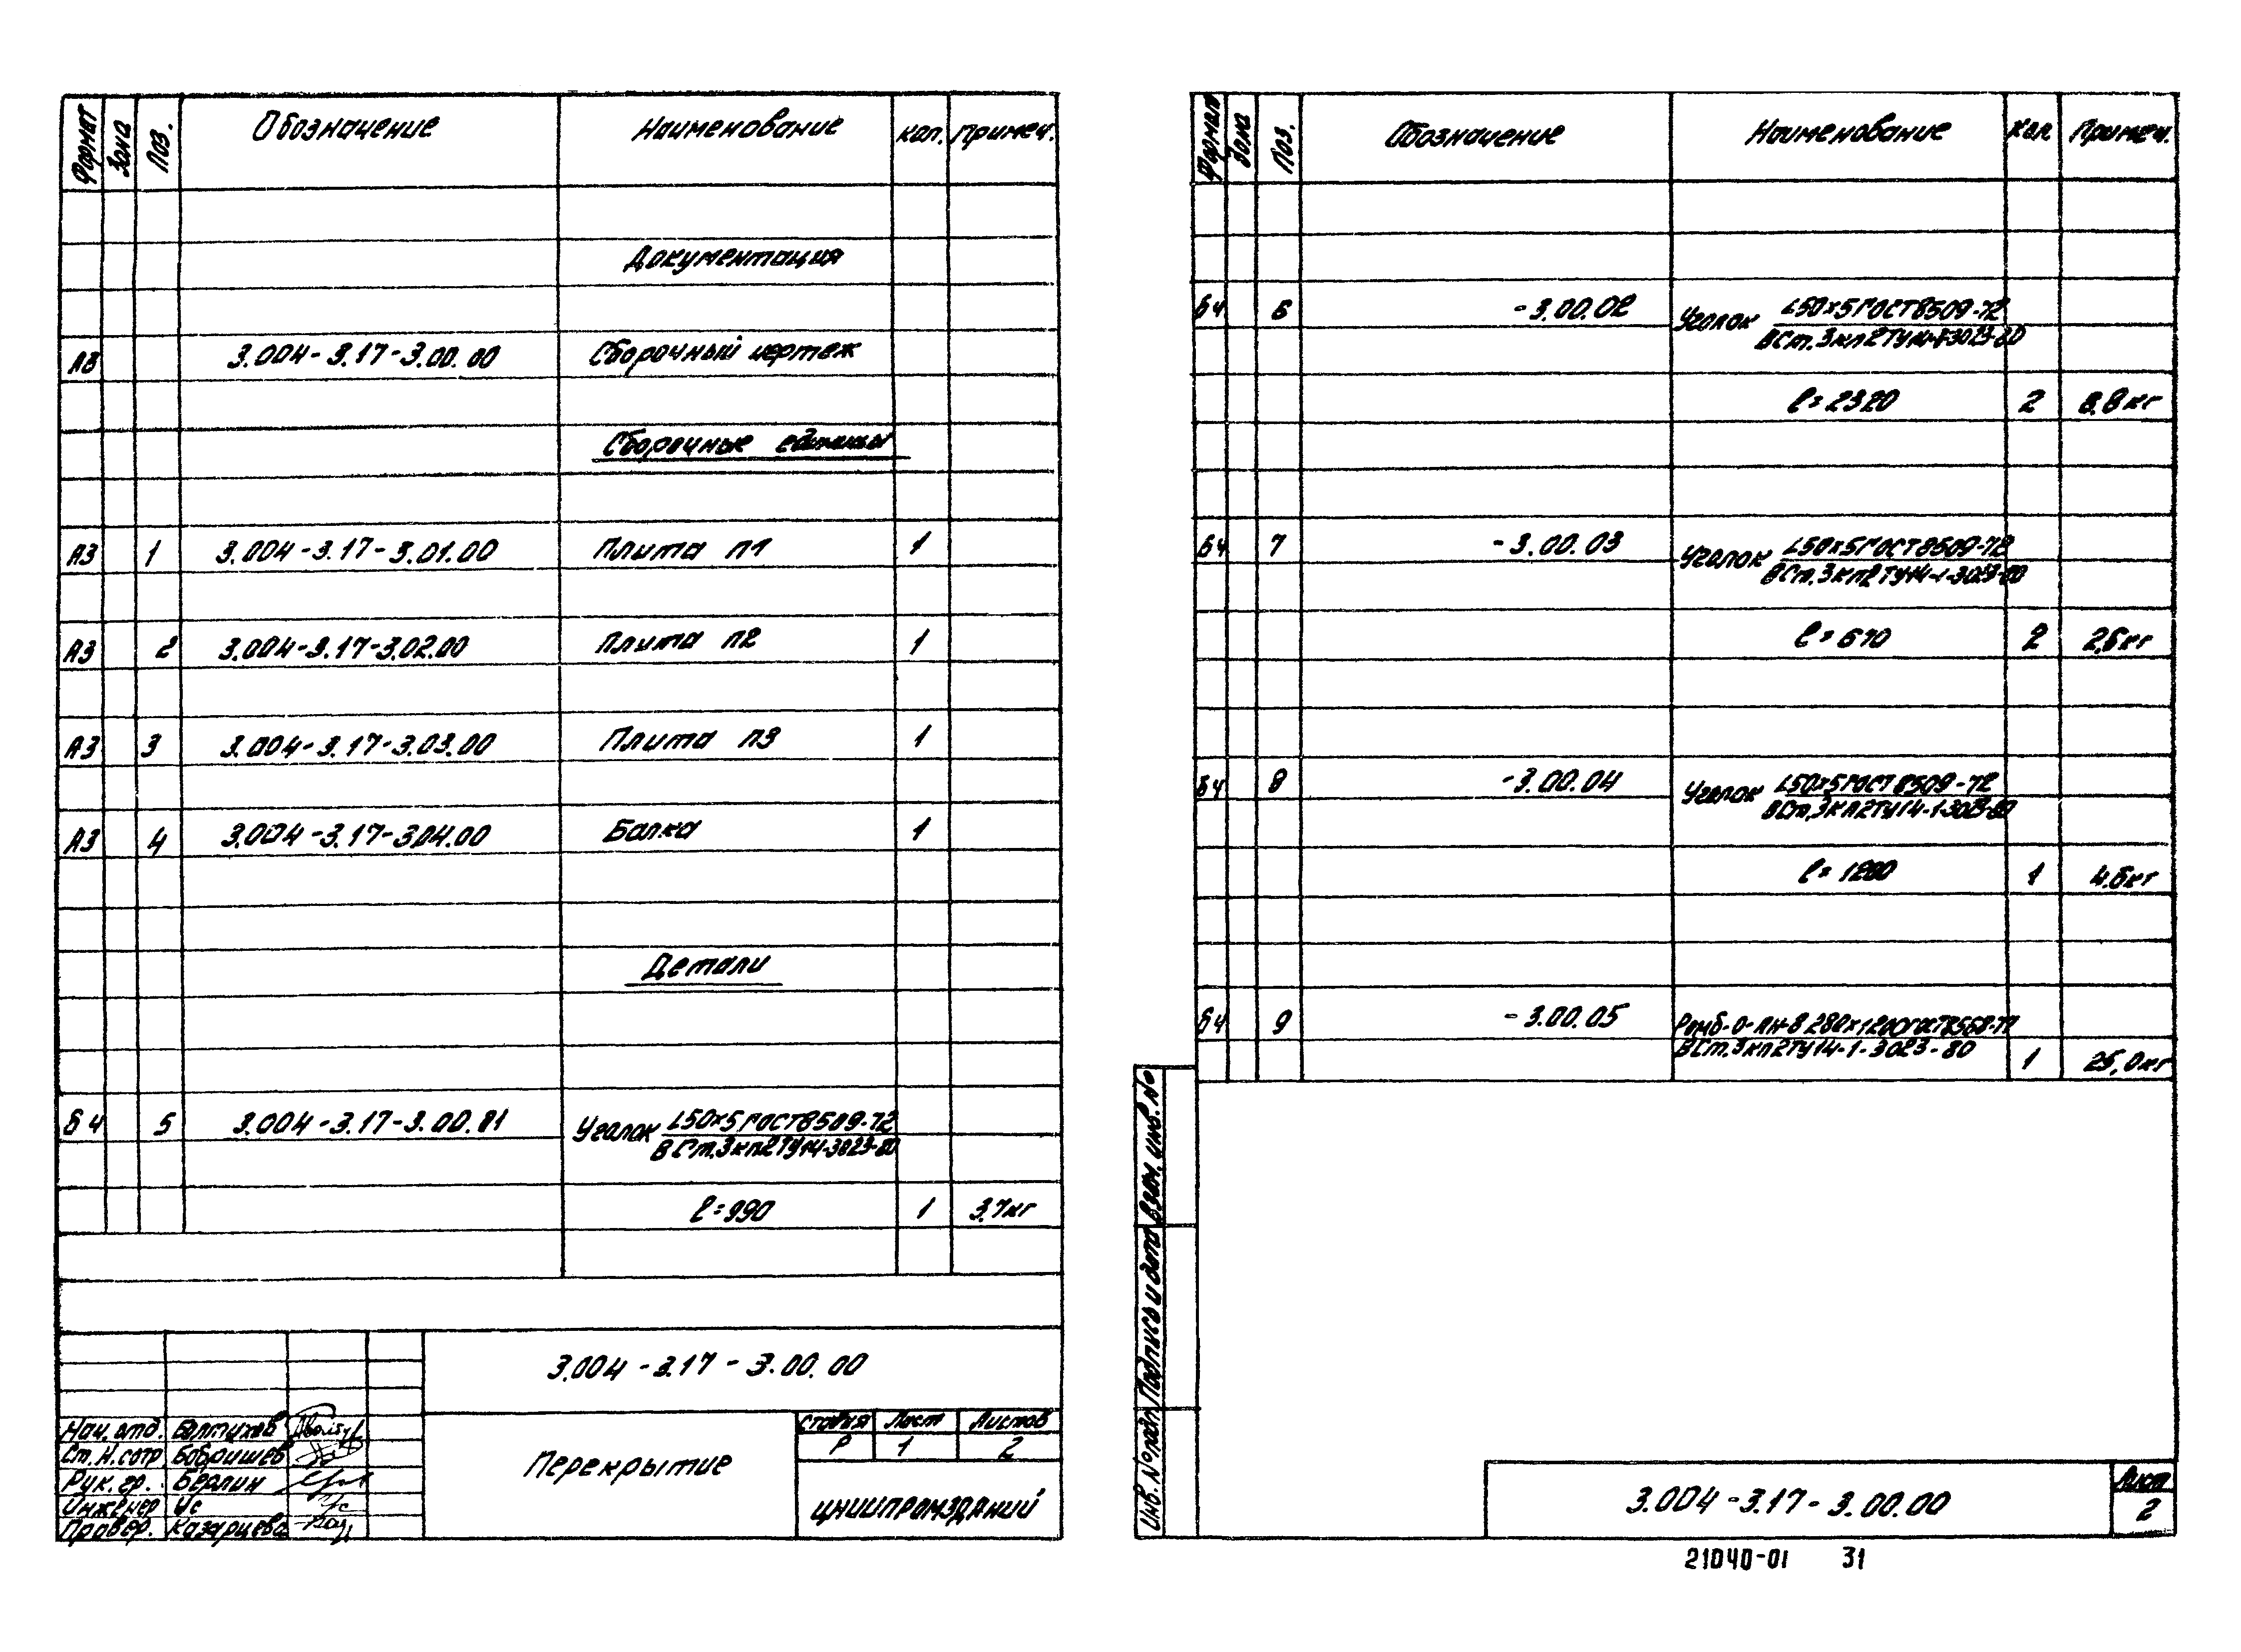 Формат Зона Поз. Обозначение Наименование Кол. Примеч.
Документация
А3 3.004-3.17-3.00.00 Сборочный чертеж
Сборочные единицы
А3 1 3.004-3.17-3.01.00 Плита П1 1
А3 2 3.004-3.17-3.02.00 Плита П2 1
А3 3 3.004-3.17-3.03.00 Плита П3 1
А3 4 3.004-3.17-3.04.00 Балка 1
Детали
Б4 5 3.004-3.17-3.00.01 Уголок L50х5 ГОСТ 8509-72
ВСт.3кп2 ТУ14-1-3023-80
l=990 1 3,7кг
3.004-3.17-3.00.00
Нач. отд. Балтухов
Ст. н. сотр Бобришев
Рук. гр. Берлин
Инженер Ус
Провер. Казарцева
Перекрытие
Стадия Лист Листов
Р 1 2
ЦНИИПРОМЗДАНИЙ
Формат Зона Поз. Обозначение Наименование Кол. Примеч.
Б4 6 -3.00.02 Уголок L50х5 ГОСТ 8509-72
ВСт.3кп2 ТУ14-1-3023-80
l=2320 2 8.8кг
Б4 7 -3.00.03 Уголок L50х5 ГОСТ 8509-72
ВСт.3кп2 ТУ14-1-3023-80
l=670 2 2,6кг
Б4 8 -3.00.04 Уголок L50х5 ГОСТ 8509-72
ВСт.3кп2 ТУ14-1-3023-80
l=1200 1 4.6кг
Б4 9 -3.00.05 Ромб-О-ПН-8 280х1200 ГОСТ 8568-77
ВСт.3кп2 ТУ14-1-3023-80 1 25,0кг
Инв. № подл. Подпись и дата Взам. инв. №
3.004-3.17-3.00.00
Лист
2
21040-01 31